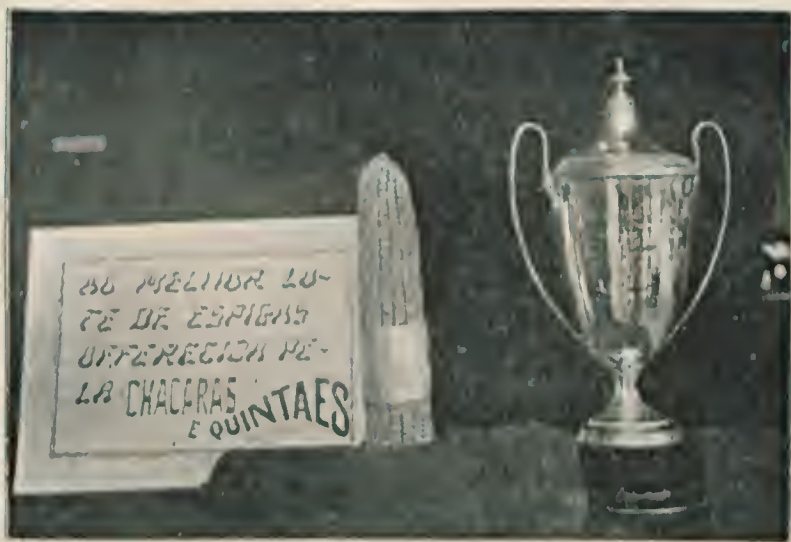 AO MELHOR LO-
TE DE ESPIGAS
OFFERECIDA PE-
LA CHACARAS
E QUINTAES